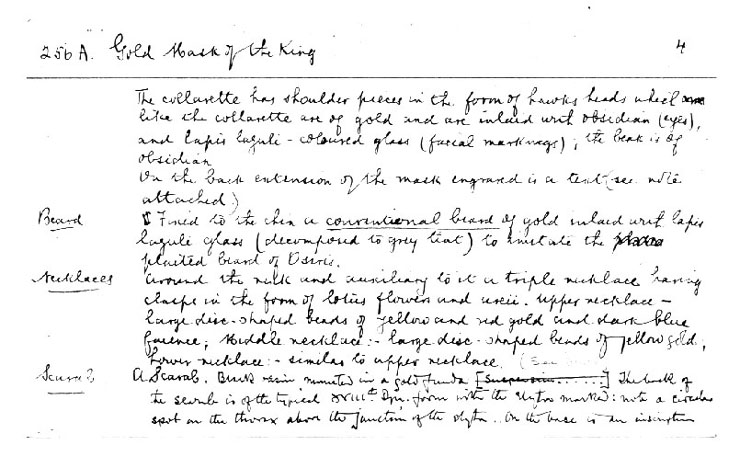 256A. Gold Mask of the King 4
The collarette has shoulder pieces in the form of hawks heads which
like the collarette are of gold and are inlaid with obsidian (eyes),
and lapis lazuli-coloured glass (facial markings); the beak is of
obsidian
On the back extension of the mask engraved is a text (see note
attached)
Beard Fixed to the chin a conventional beard of gold inlaid with lapis
lazuli glass (decomposed to grey tint) to imitate the
plaited beard of Osiris.
Necklaces Around the neck and auxiliary to it a triple necklace having
clasps in the form of lotus flowers and uraei. Upper necklace -
large disc-shaped beads of yellow and red gold and dark blue
faience; Middle necklace:- large disc-shaped beads of yellow gold;
Lower necklace:- similar to upper necklace. (See
Scarab A Scarab. Black resin mounted in a gold funda [Suspension......] The back of
the scarab is of the typical XVIIIth Dyn. form with the elytra marked: note a circular
spot on the thorax above the junction of the elytra. On the base is an inscription